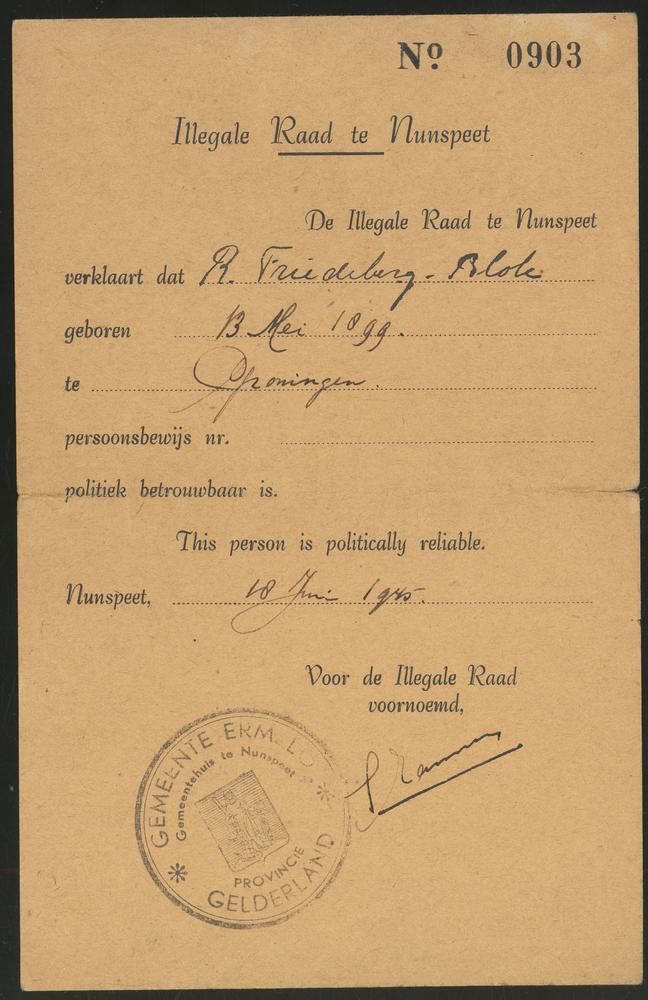 Nº 0903
Illegale Raad te Nunspeet
De Illegale Raad te Nunspeet
verklaart dat R. Friedeberg - Blok
geboren 13 Mei 1899.
te Groningen.
persoonsbewijs nr.
politiek betrouwbaar is.
This person is politically reliable.
Nunspeet, 18 Juni 1945.
Voor de Illegale Raad
voornoemd,
GEMEENTE ERMELO
Gemeentehuis te Nunspeet
PROVINCIE
GELDERLAND